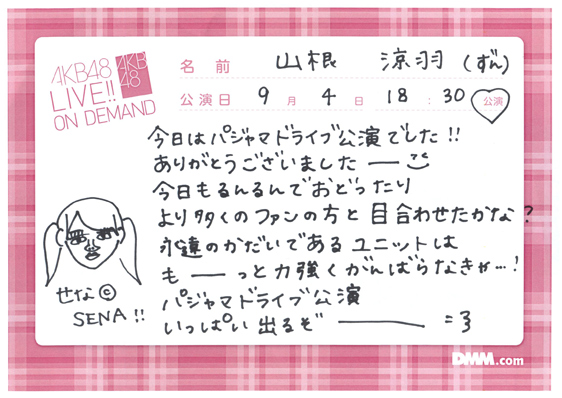 AKB48
LIVE!!
ON DEMAND
AKB
48
名前 山根 涼羽 (ずん)
公演日 9月 4日 18:30 公演
今日はパジャマドライブ公演でした!!
ありがとうございました ー
今日もるんるんでおどったり
より多くのファンの方と目合わせたかな?
永遠のかだいであるユニットは
も ー っと力強くがんばらなきゃ…!
パジャマドライブ公演
いっぱい出るぞ ー =3
せな©
SENA!!
DMM.com